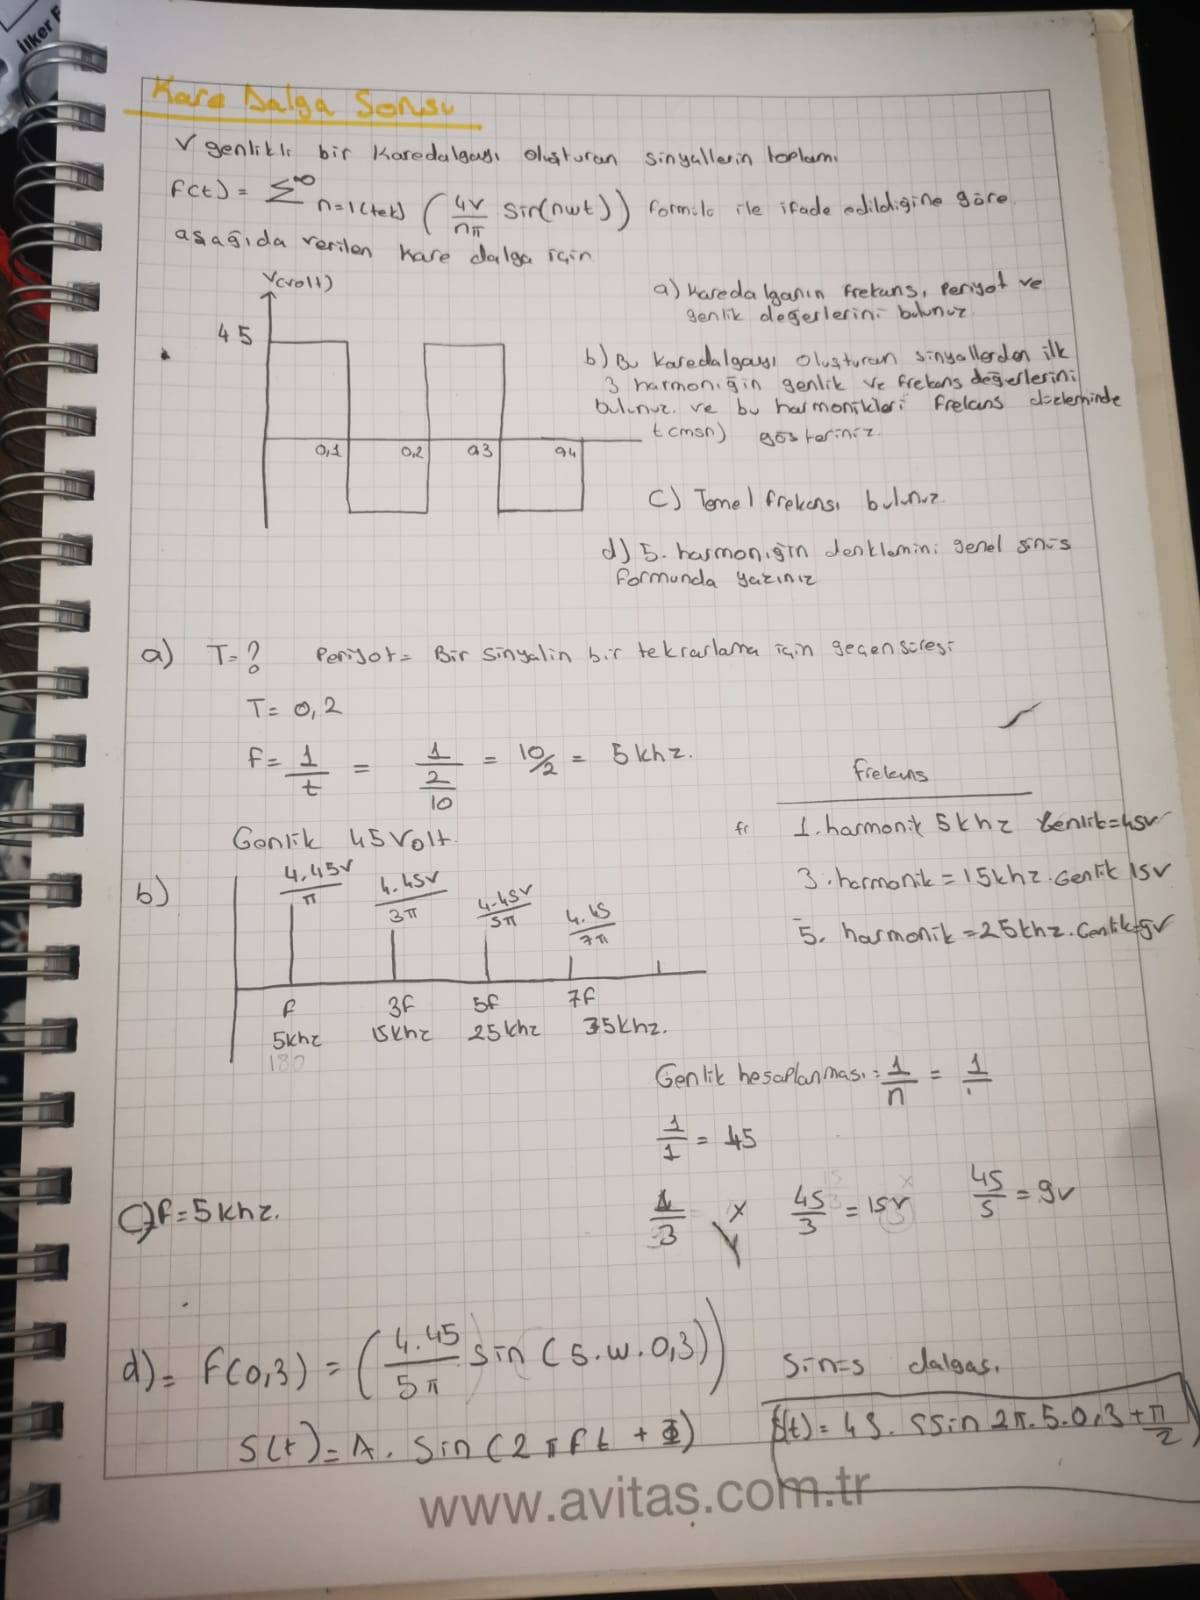 İlker
Kare Dalga Sorusu
V genlikli bir karedalgayı oluşturan sinyallerin toplamı
f(t) = Σ^∞ n=1(tek) (4V/nπ sin(nwt)) formülü ile ifade edildiğine göre
aşağıda verilen kare dalga için
V(volt)
45
0,1 0,2 0,3 0,4
t(msn)
a) Karedalganın frekans, periyot ve
genlik değerlerini bulunuz
b) Bu karedalgayı oluşturan sinyallerden ilk
3 harmoniğin genlik ve frekans değerlerini
bulunuz ve bu harmonikleri frekans düzleminde
gösteriniz.
c) Temel frekansı bulunuz.
d) 5. harmoniğin denklemini genel sinüs
formunda yazınız
a) T=? Periyot = Bir sinyalin bir tekrarlama için geçen süresi
T= 0,2
F= 1/t = 1/(2/10) = 10/2 = 5khz.
Genlik 45 Volt.
Frekans
fr 1.harmonik 5khz Genlik=45v
3.harmonik = 15khz. Genlik 15v
5. harmonik = 25khz. Genlik=9v
b)
4.45v/π 4.45v/3π 4.45v/5π 4.45/7π
f 3f 5f 7f
5khz 15khz 25khz 35khz.
180
Genlik hesaplanması = 1/n = 1/
1/1 = 45
1/3 x 45/3 = 15v 45/5 = 9v
c) f=5khz.
d) = F(0,3) = (4.45/5π sin(5.w.0,3))
S(t) = A. Sin(2πft + Φ)
Sinüs dalgası
S(t) = 45. 5sin 2π.5.0,3+π/2
www.avitas.com.tr